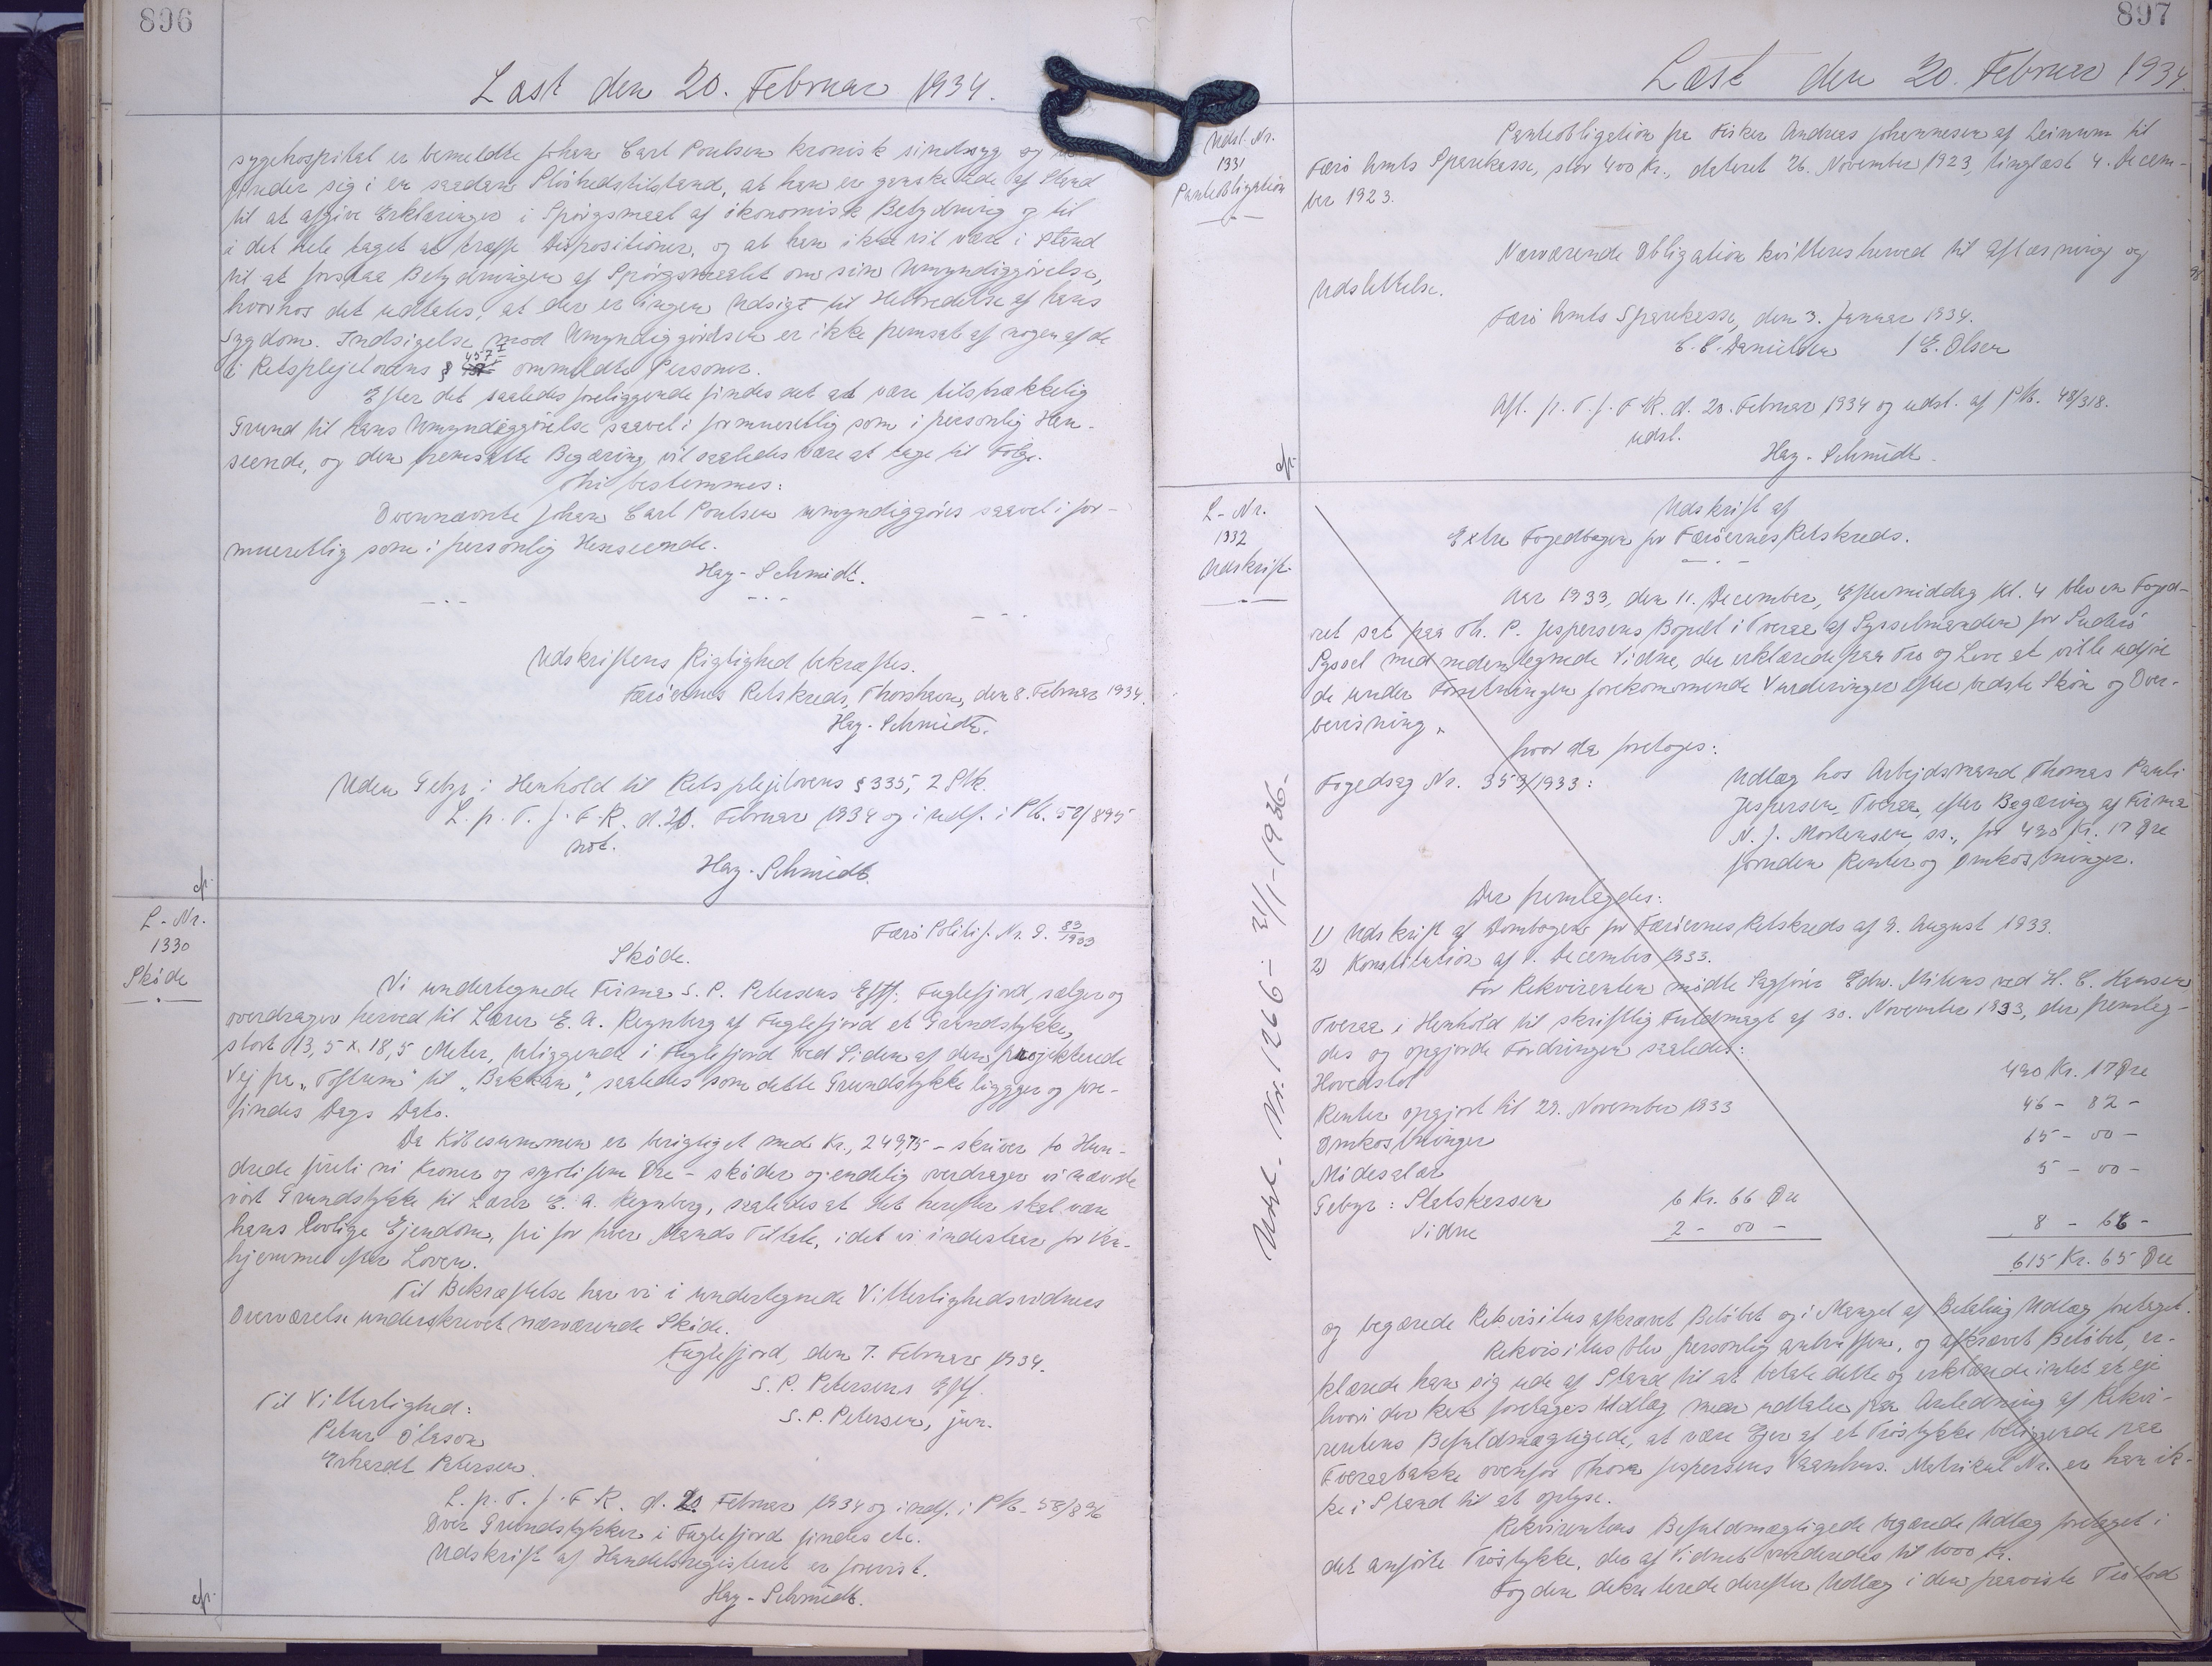 896
Læst den 20. Februar 1934.
sygehospital er bemeldte Johan Carl Poulsen kronisk sindssyg og
finder sig i en saadan Sløvhedstilstand, at han er ganske ude af Stand
til at afgive Erklæringer i Spørgsmaal af økonomisk Betydning og til
i det hele taget at træffe Dispositioner, og at han ikke vil være i Stand
til at forstaa Betydningen af Spørgsmaalet om sin Umyndiggørelse,
hvorhos det udtales, at der er ingen Udsigt til Helbredelse af hans
Sygdom. Indsigelse mod Umyndiggørelsen er ikke fremsat af nogen af de
i Retsplejelovens § 457 I ommeldte Personer.
Efter det saaledes foreliggende findes det at være tilstrækkelig
Grund til hans Umyndiggørelse saavel i formueretlig som i personlig Hen-
seende, og den fremsatte Begæring vil saaledes være at tage til Følge.
Thi bestemmes:
Ovennævnte Johan Carl Poulsen umyndiggøres saavel i for-
mueretlig som i personlig Henseende.
Hay-Schmidt.
Udskriftens Rigtighed bekræftes.
Færøernes Retskreds, Thorshavn, den 8. Februar 1934.
Hay-Schmidt.
Uden Gebyr i Henhold til Retsplejelovens § 335, 2 Stk.
L. p. T. f. F. R. d. 20. Februar 1934 og indf. i Pb. 58/895
not.
Hay-Schmidt.
L-Nr.
1330
Skøde
Færø Politif. Nr. 9. 83/1933
Skøde.
Vi undertegnede Firma S. P. Petersens Eftf. Fuglefjord, sælger og
overdrager herved til Lærer E. A. Reynberg af Fuglefjord et Grundstykke,
stort 13,5 x 18,5 Meter, beliggende i Fuglefjord ved Siden af den projekterede
Vej fra "Toftum" til "Bakkan", saaledes som dette Grundstykke ligger og fore-
findes Dags Dato.
Da Købesummen er berigtiget med Kr. 249,75 - skriver to Hun-
drede firti ni Kroner og syvti fem Øre - skøder og endelig overdrager vi nævnte
vort Grundstykke til Lærer E. A. Reynberg, saaledes at det herefter skal være
hans lovlige Ejendom, fri for hver Mands Tiltale, idet vi indestaar for Van-
hjemmel efter Loven.
Til Bekræftelse har vi i undertegnede Vitterlighedsvidners
Overværelse underskrevet nærværende Skøde.
Fuglefjord, den 7. Februar 1934.
S. P. Petersens Eftf.
S. P. Petersen, jun.
Til Vitterlighed:
Petur Ólason
Erhardt Petersen.
L. p. T. f. F. R. d. 20 Februar 1934 og indf. i Pb. 58/896
Over Grundstykker i Fuglefjord findes etc.
Udskrift af Handelsregisteret er forevist.
Hay-Schmidt.
897
Læst den 20. Februar 1934.
Udsl. Nr.
1331
Panteobligation
Panteobligation fra Fisker Andreas Johannesen af Leinum til
Færø Amts Sparekasse, stor 400 Kr., dateret 26. November 1923, tinglæst 4. Decem-
ber 1923.
Nærværende Obligation kvitteres herved til Aflæsning og
Udslettelse.
Færø Amts Sparekasse, den 3. Januar 1934.
C. C. Danielsen / E. Olsen
Afl. p. T. f. F. R. d. 20. Februar 1934 og udsl. af Pb. 48/318.
udsl.
Hay-Schmidt.
L-Nr.
1332
Udskrift.
Udsl. Nr. 1266 - 21/1-1936-
Udskrift af
Extra Fogedbogen for Færøernes Retskreds.
Aar 1933, den 11. December, Eftermiddag Kl. 4 blev en Foged-
ret sat paa Th. P. Jespersens Bopæl i Tveraa af Sysselmanden for Suderø
Syssel med undertegnede Vidne, der erklærede paa Tro og Love at ville udføre
de under Forretningen forekommende Vurderinger efter bedste Skøn og Over-
bevisning.
hvor da foretoges:
Fogedsag Nr. 353/1933:
Udlæg hos Arbejdsmand Thomas Pauli
Jespersen, Tveraa, efter Begæring af Firma
N. J. Mortensen, ss., for 490 Kr. 17 Øre
foruden Renter og Omkostninger.
Der fremlagdes:
1) Udskrift af Dombogen for Færøernes Retskreds af 9. August 1933.
2) Konstitution af 1. December 1933.
For Rekvirenten mødte Sagfører Edw. Mitens ved H. C. Hansen
Tveraa i Henhold til skriftlig Fuldmagt af 30. November 1933, der fremlag-
des og opgjorde Fordringen saaledes:
Hovedstol 490 Kr. 17 Øre
Renter opgjort til 29. November 1933 46 - 82 -
Omkostninger 65 - 00 -
Mødesalær 5 - 00 -
Gebyr: Statskassen 6 Kr. 66 Øre
Vidne 2 - 00 - 8 - 66 -
615 Kr. 65 Øre
og begærede Rekvisitus afkrævet Beløbet og i Mangel af Betaling Udlæg foretaget.
Rekvisitus blev personlig antruffen, og afkrævet Beløbet, er-
klærede han sig ude af Stand til at betale dette og erklærede intet at eje
hvori der kan foretages Udlæg men udtaler paa Anledning af Rekvi-
rentens Befuldmægtigede, at være Ejer af et Trøstykke beliggende paa
Tveraabakke ovenfor Thora Jespersens Vaanhus. Matrikul Nr. er han ik-
ke i Stand til at oplyse.
Rekvirentens Befuldmægtigede begærede Udlæg foretaget i
det anførte Trøstykke, der af Vidnet vurderedes til 1000 Kr.
Fogden dekreterede derefter Udlæg i den paaviste Trølod